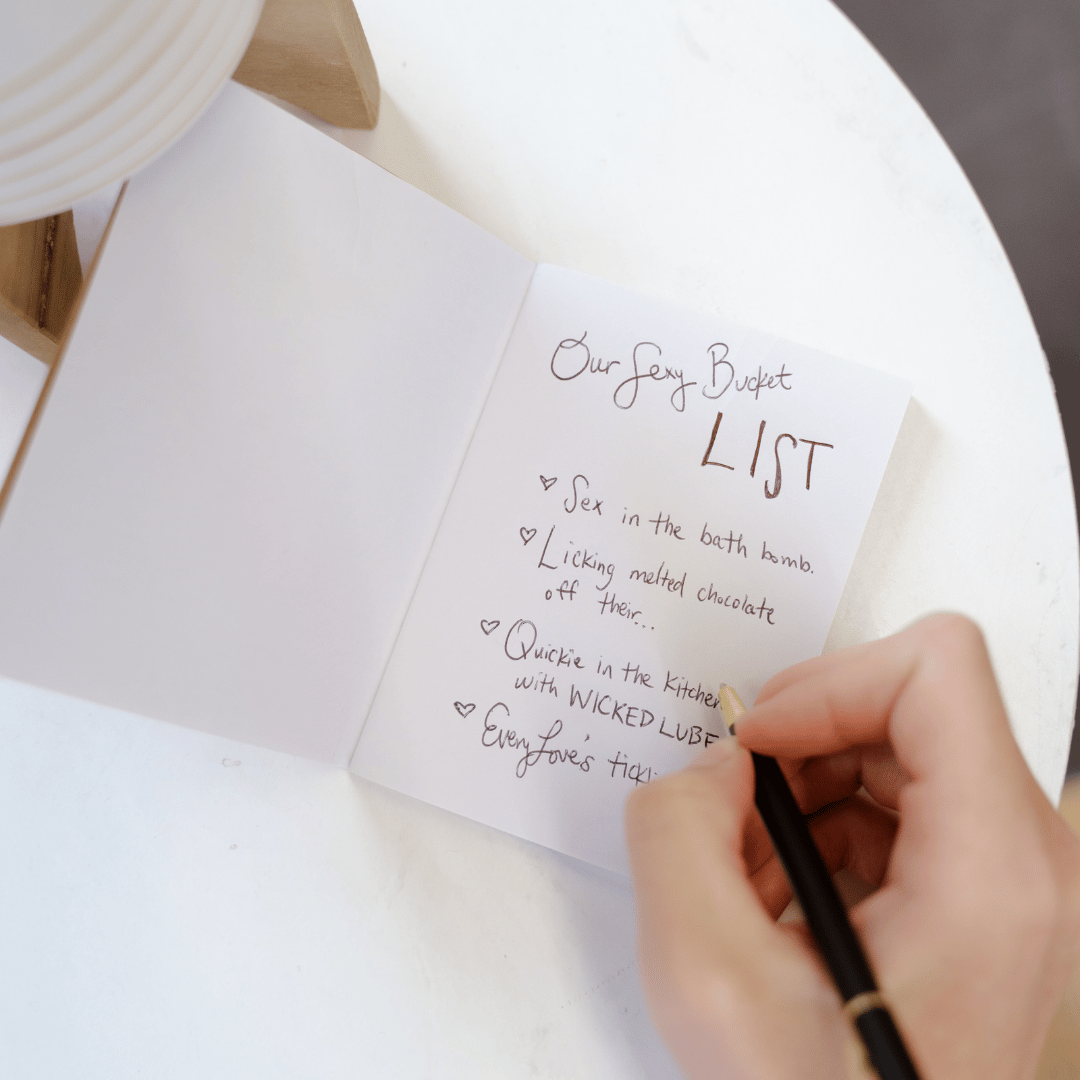 Our Sexy Bucket
LIST
Sex in the bath bomb.
Licking melted chocolate
off their...
Quickie in the Kitchen
with WICKED LUBE
EveryLove's